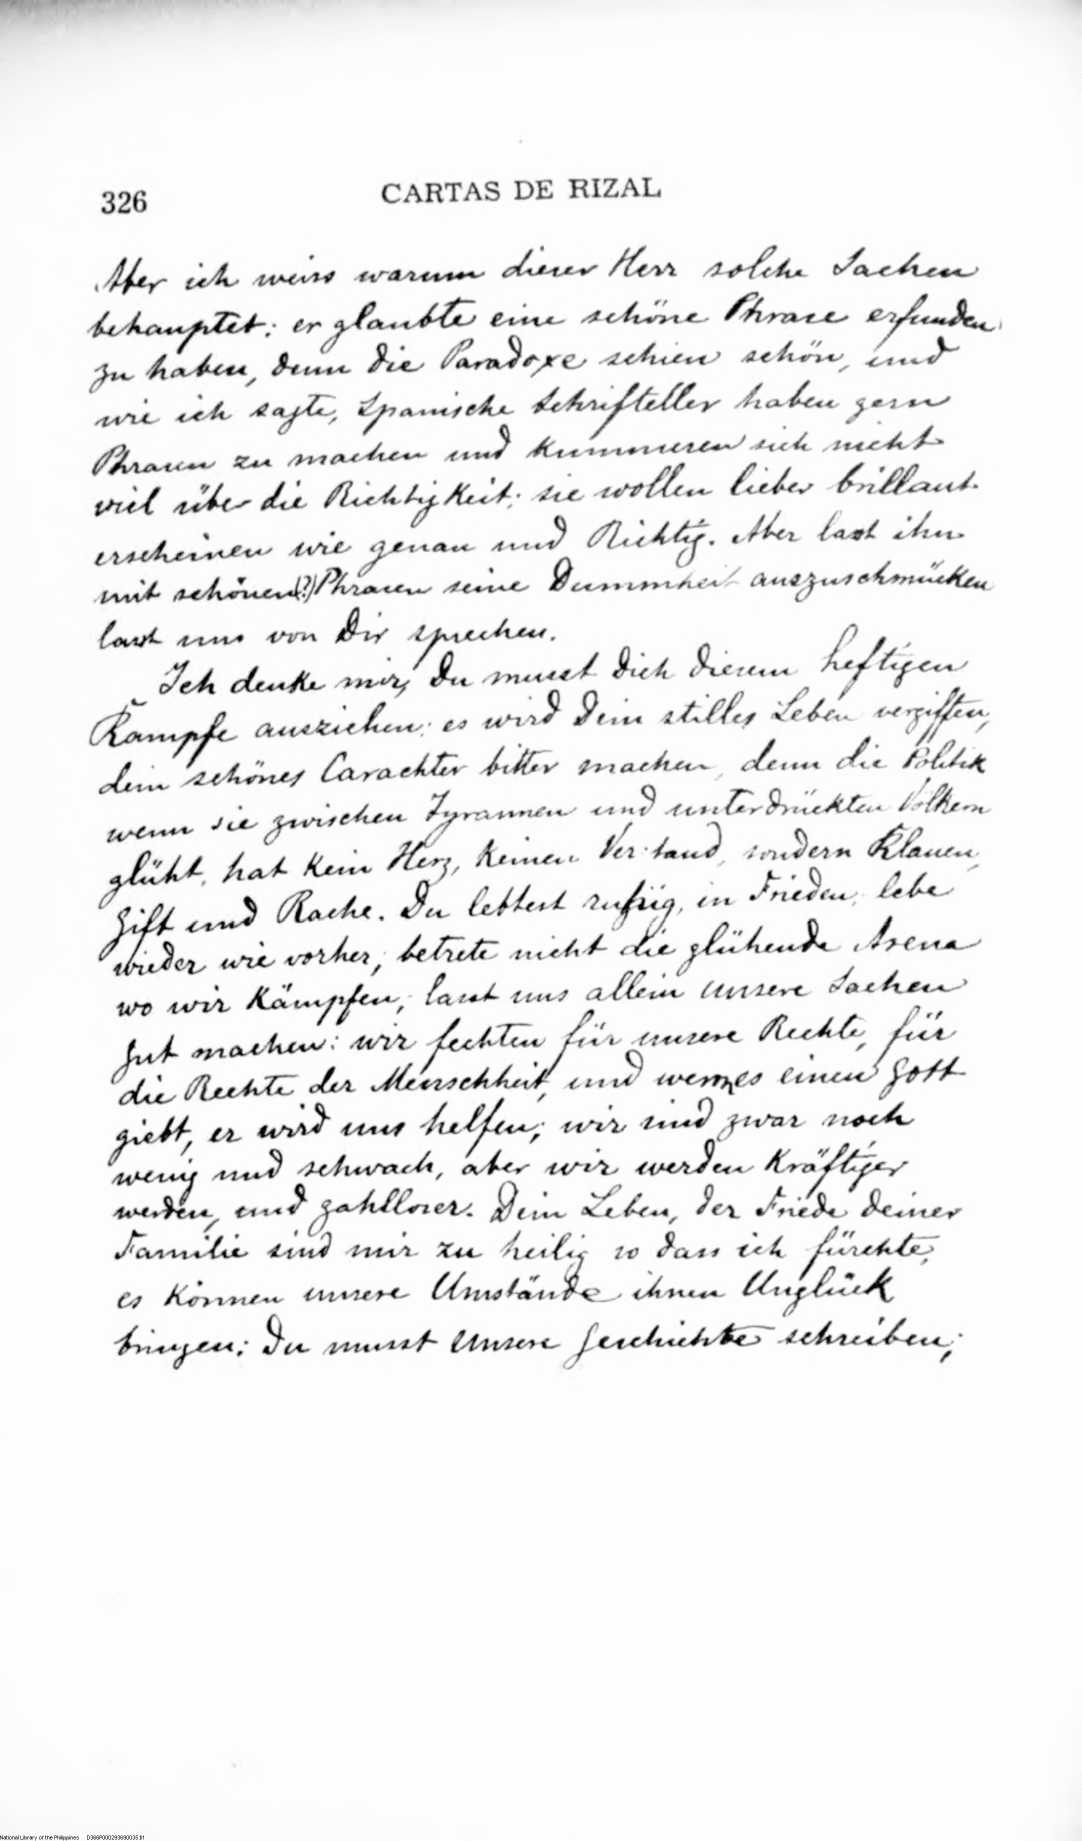 326
CARTAS DE RIZAL
Aber ich weiss warum dieser Herr solche Sachen
behauptet: er glaubte eine schöne Phrase erfunden
zu haben, denn die Paradoxe schien schön, und
wie ich sagte, Spanische Schrifteller haben gern
Phrasen zu machen und kummeren sich nicht
viel über die Richtigkeit; sie wollen lieber brillant
erscheinen wie genau und Richtig. Aber lasst ihn
mit schönen(?) Phrasen seine Dummheit auszuschmücken
lasst uns von Dir sprechen.
Ich denke mir, Du musst dich diesem heftigen
Kampfe ausziehen; es wird Dein stilles Leben vergiften,
dein schönes Carachter bitter machen, denn die Politik
wenn sie zwischen Tyrannen und unterdrückten Völkern
glüht, hat kein Herz, keinen Verstand, sondern Klauen,
Gift und Rache. Du lebtest ruhig, in Frieden; lebe
wieder wie vorher; betrete nicht die glühende Arena
wo wir kämpfen; lasst uns allein unsere Sachen
gut machen: wir fechten für unsere Rechte, für
die Rechte der Menschheit, und wenn es einen Gott
giebt, er wird uns helfen; wir sind zwar noch
wenig und schwach, aber wir werden kräftiger
werden, und zahlloser. Dein Leben, der Friede deiner
Familie sind mir zu heilig so dass ich fürchte,
es können unsere Umstände ihnen Unglück
bringen; Du musst unsere Geschichte schreiben;
National Library of the Philippines